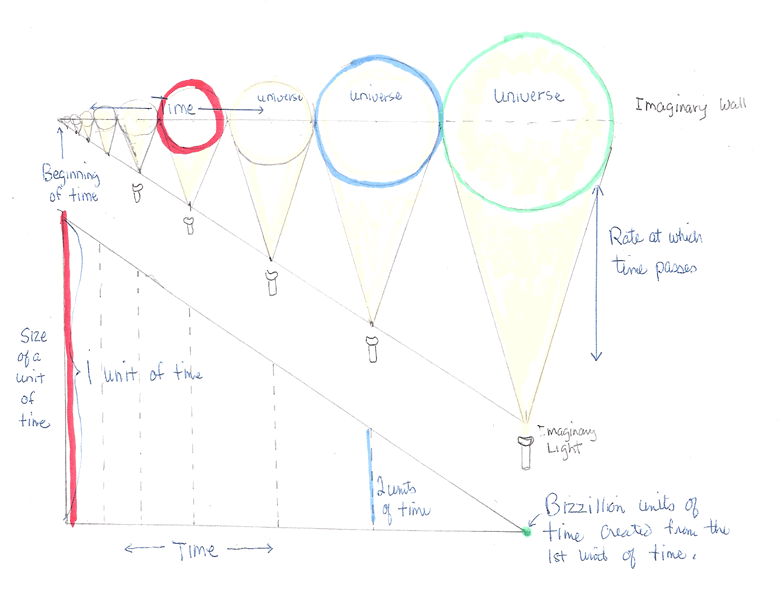 Time
universe
universe
universe
Imaginary Wall
Beginning
of time
Rate at which
time passes
Size
of a
unit
of
time
1 unit of time
Imaginary
Light
2 units
of time
Bizzillion units of
time created from the
1st unit of time.
Time